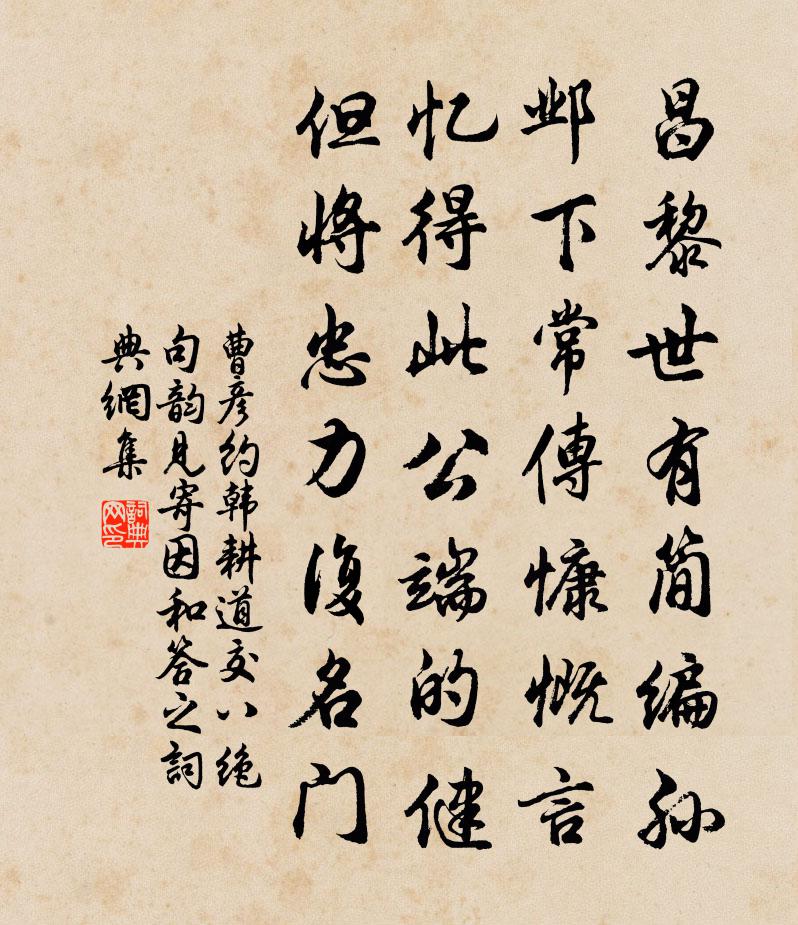 昌黎世有简编孙
邺下常傳慷慨言
忆得此公端的健
但将忠力復名门
曹彦约韩耕道交八绝
句韵见寄因和答之詞
典網集
詞典网印